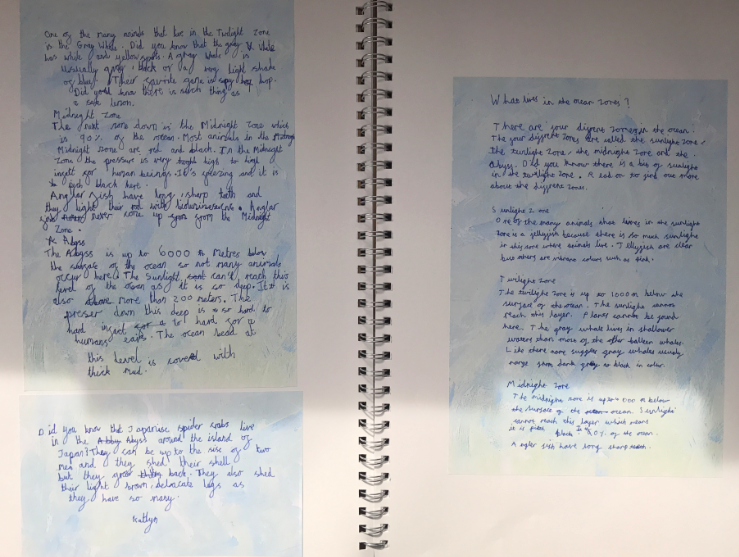 One of the many animals that live in the Twilight Zone
is the Gray Whale. Did you know that the gray whale
has white and yellow spots. A gray whale is
usually grey, black or a very light shade
of blue. Their favourite game is spy hop.
Did you know there is such thing as
a sea lion.
Midnight Zone
The next zone down is the Midnight Zone which
is 90% of the ocean. Most animals in the Midnight
Midnight Zone are red and black. In the Midnight
Zone the pressure is very high to high
for human beings. It's freezing and it is
pitch black here.
Angler fish have long, sharp teeth and
they light their rod with bioluminescence. Anglar
never come up from the Midnight
Zone.
Abyss
The Abyss is up to 6000 Metres below
the surface of the ocean so not many animals
occur here. The sunlight can't reach this
level of the ocean as it is so deep. It is
also more than 200 meters. The
presser down this deep is so hard to
hard for a
humans ears. The ocean bead at
this level is covered with
thick mud.
Did you know the Japaniese spider crabs live
in the Abyss around the island of
Japan? They can be up to the size of two
men and they shed their shell
but they grow back. They also shed
their light brown, delacate legs as
they have so many.
Katlyn
What lives in the ocean zones?
There are four diffrent zones in the ocean.
The four diffrent zones are called the sunlight zone,
the twilight zone, the midnight zone and the
Abyss. Did you know there is a bit of sunlight
in the twilight zone. Read on to find out more
about the diffrent zones.
Sunlight Zone
One of the many animals that lives in the sunlight
zone is a jellyfish because there is so much sunlight
in this zone where animals live. Jellyfish are clear
but others are vibrant colours such as pink.
Twilight Zone
The twilight zone is up to 1000m below the
surface of the ocean. The sunlight cannot
reach this layer. Plants cannot be found
here. The gray whale lives in shallower
waters than most of the other balleen whales.
Like there name suggest gray whales usualy
range from dark gray to black in color.
Midnight Zone
The midnight zone is up to 000 m below
the surface of the ocean. Sunlight
cannot reach this layer which means
it is pitch black. Is 90% of the ocean.
Angler fish have long sharp teeth.